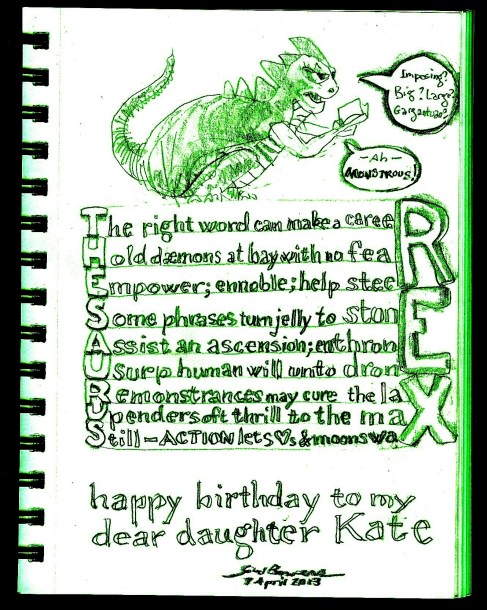 Imposing?
Big? Large?
Gargantuan?
—Ah—
MONSTROUS!
The right word can make a caree
Hold dæmons at bay with no fea
Empower; ennoble; help stee
Some phrases turn jelly to ston
Assist an ascension; enthron
Usurp human will unto dron
Remonstrances may cure the la
Upenders oft thrill to the ma
Still – ACTION lets ♡s & moonswa
REX
happy birthday to my
dear daughter Kate
7 April 2013